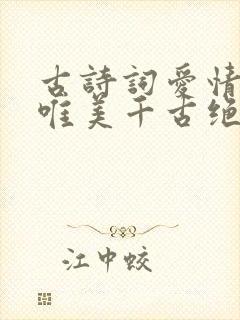 古詩詞愛情
唯美千古绝
江中蛟